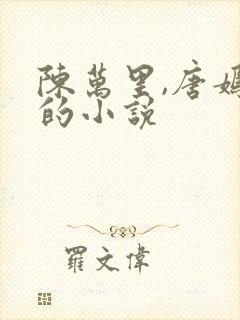 陳萬里,唐嫣
的小說
羅文偉